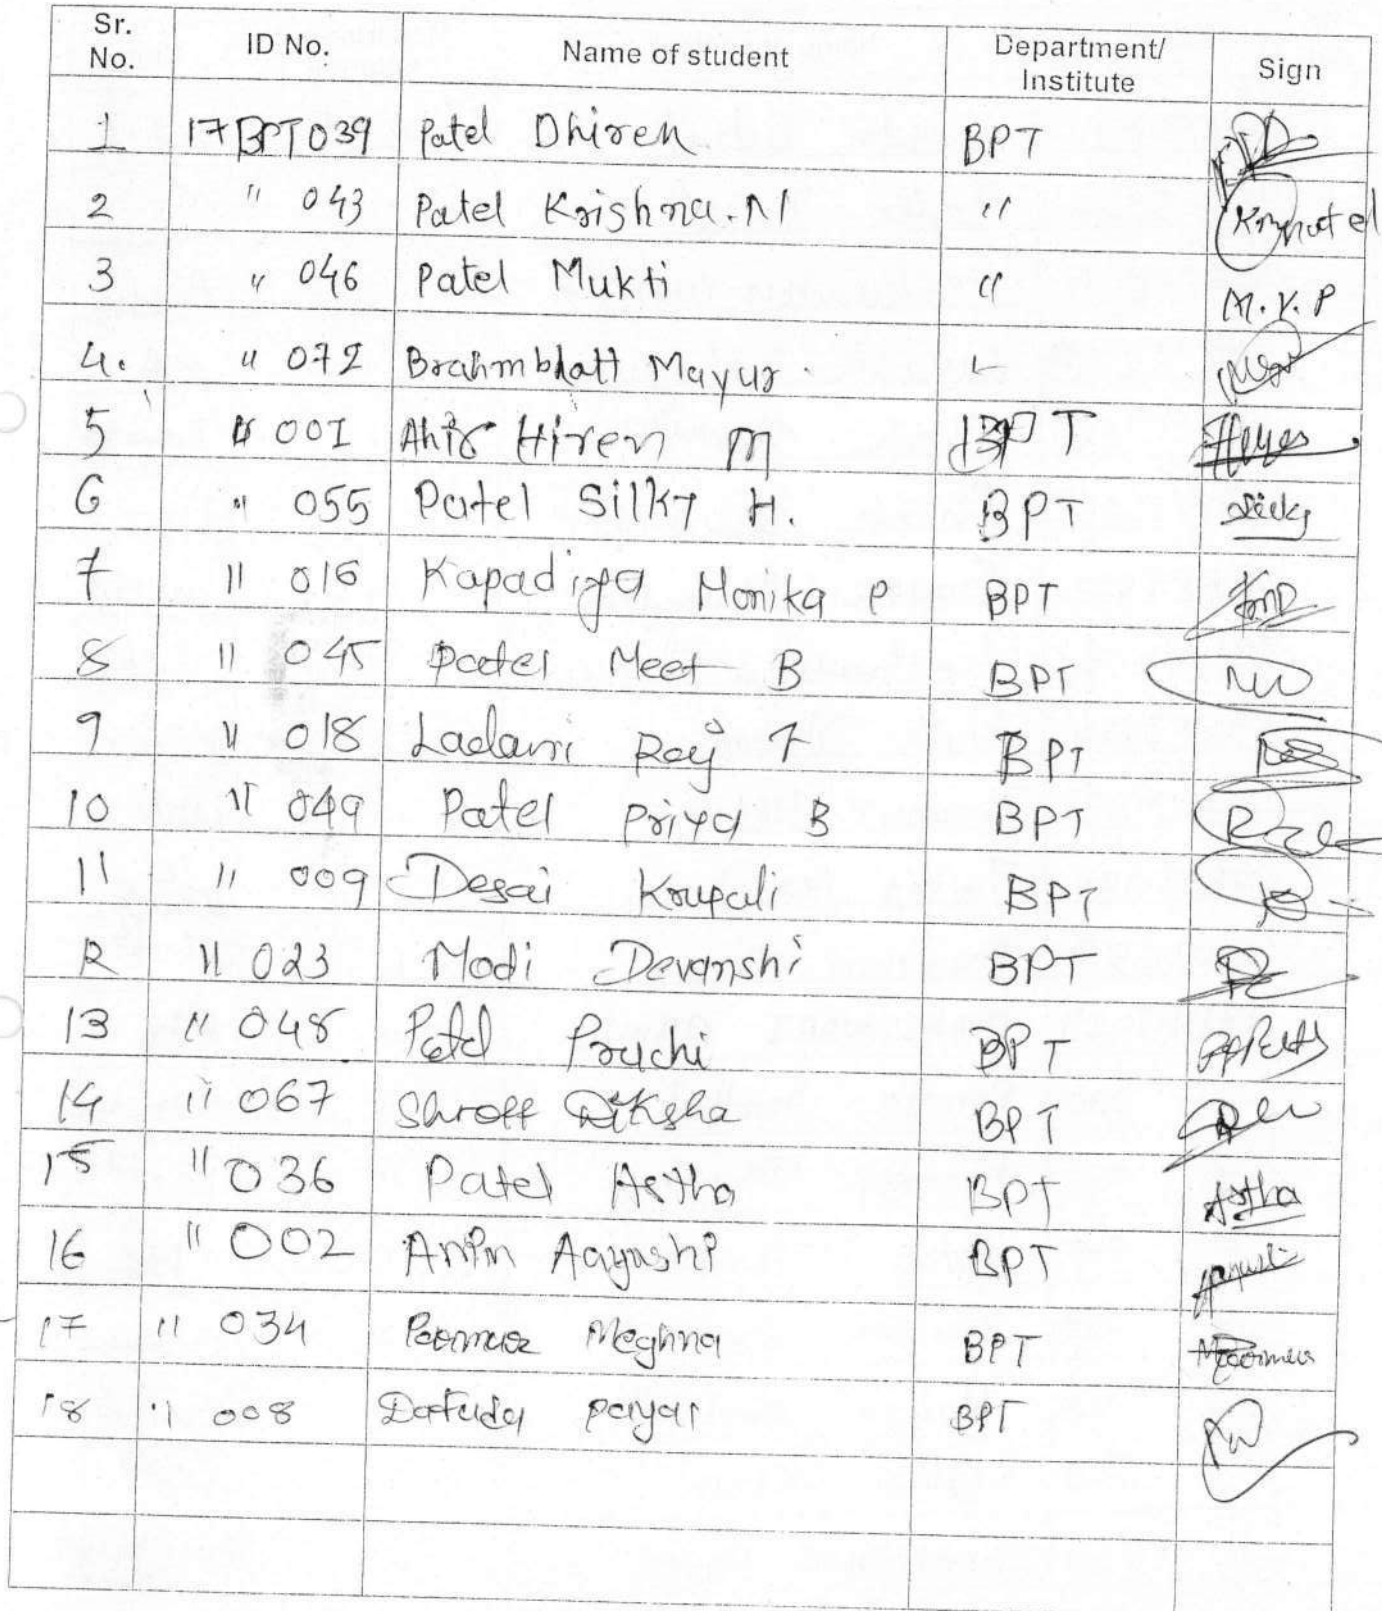 Sr. No. ID No. Name of student Department/ Institute Sign
1 17BPT039 Patel Dhiren BPT
2 " 043 Patel Krishna.N "
3 " 046 Patel Mukti " M.V.P
4. " 072 Brahmbhatt Mayur. "
5 " 001 Ahir Hiren M BPT
6 " 055 Patel Silky H. BPT
7 " 016 Kapadiya Monika P BPT
8 " 045 Patel Meet B BPT
9 " 018 Ladani Raj BPT
10 " 049 Patel Priya B BPT
11 " 009 Desai Krupali BPT
12 " 023 Modi Devanshi BPT
13 " 048 Patel Prachi BPT
14 " 067 Shroff Diksha BPT
15 " 036 Patel Astha BPT Astha
16 " 002 Amin Aayushi BPT
17 " 034 Parmar Meghna BPT
18 " 008 Dafuda Payal BPT